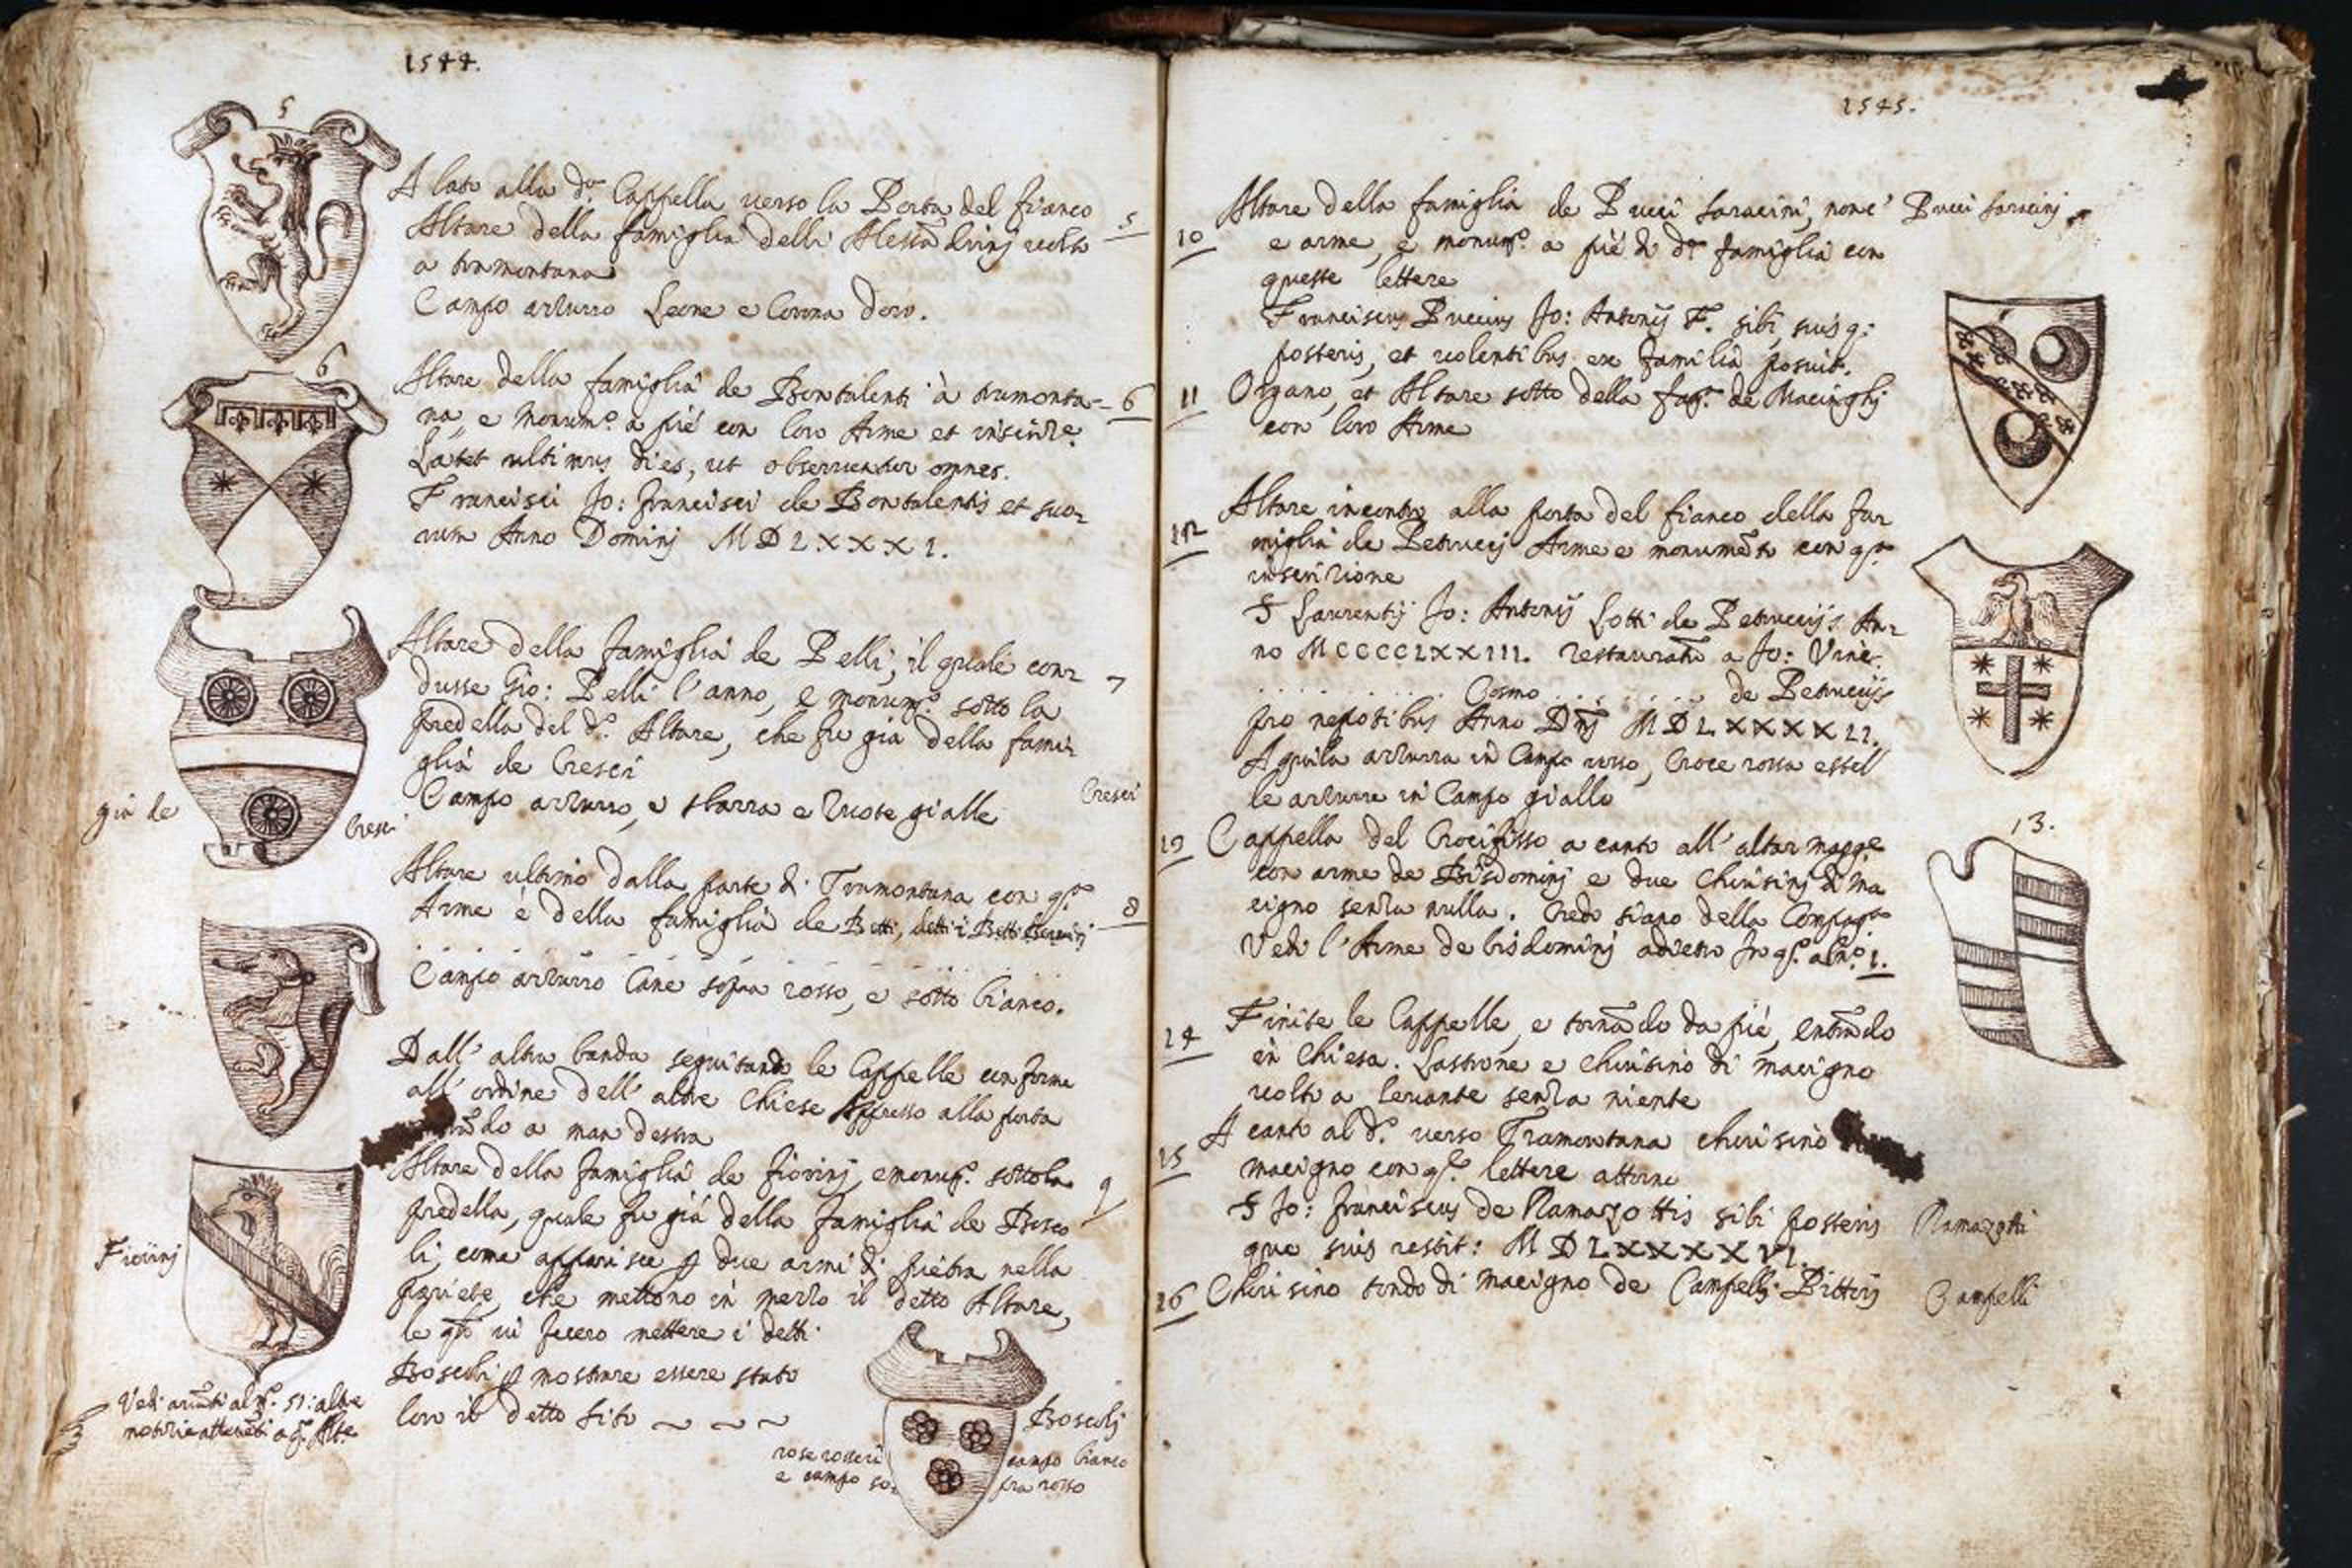 1544.
5
A lato alla d.ª Cappella verso la Porta del fianco
5
Altare della famiglia delli Alessãdrinj volto
a tramontana
Campo azzurro Leone e Corona d'oro.
6
Altare della famiglia de Bontalenti à tramonta-
6
na, e monum.º a piè con loro Arme et inscriz.e
Latet ultimus dies, ut observentur omnes.
Francisci Jo: francisci de Bontalentis et suo-
rum Anno Dominj MDLXXXI.
Altare della famiglia de Pelli, il quale con-
7
dusse Gio: Pelli l'anno, e monum.º sotto la
predella del d.º Altare, che fu già della fami-
glia de Cresci
Campo azzurro, e sbarra e Ruote gialle
Cresci
già de
Cresci
Altare ultimo dalla parte di Tramontana con q.ta
8
Arme è della famiglia de Betti, detti i Betti
Campo azzurro Cane sopra rosso, e sotto bianco.
Dall' altra banda seguitando le Cappelle conforme
all' ordine dell' altre Chiese Appresso alla porta
a man destra
Altare della famiglia de fiorinj, e monum.º sotto la
9
predella, quale fu già della famiglia de Bosco
li, come apparisce p due armi di pietra nella
Fiorinj
pariete, che mettono in mezzo il detto Altare,
le q̃li vi fecero mettere i detti
Boscoli p mostrare essere stato
loro il detto sito ~ ~ ~
Vedi avãti al n.º 51: altre
notizie attenẽti a q.º Alt.e
Boscolj
rose rosse
e campo
campo bianco
rosso
1545.
Altare della famiglia de Pucci Saracini, nome
Pucci Saracinj
10
e arme, e monum.º a piè di d.ª famiglia con
queste lettere
Franciscus Puccius Jo: Antonij F. sibi, suis q:
posteris, et volentibus ex familia posuit.
11
Organo, et Altare sotto della fag.ª de Macinghj
con loro Arme
12
Altare incontro alla porta del fianco della fa-
miglia de Petruccj Arme e monumẽto con q.ta
inscrizione
S Laurentij Jo: Antonij Lotti de Petruccijs An-
no MCCCCLXXIII. restauratũ a Jo:
. . . . . . Cosmo . . . . . . de Petruccijs
pro nepotibus Anno Dñj MDLXXXXII.
Aquila azzurra in Campo rosso, Croce rossa e stel
le azzurre in Campo giallo
13
Cappella del Crocifisso a canto all' altar magg.e
13.
con arme de Bisdominj e due chiusinj di ma
cigno senza nulla. Credo siano della Compag.a
Vedi l'Arme de bisdominj adietro in q.º al n.º 1.
14
Finite le Cappelle, e tornãdo da piè, entrãdo
in Chiesa. Lastrone e chiusino di macigno
volto a levante senza niente
15
A canto al d.º verso Tramontana chiusino
macigno con q.te lettere attorno
S Jo: franciscus de Ramazottis sibi posteris
Ramazotti
que suis restit: MDLXXXXVI.
16
Chiusino tondo di macigno de Campelli Pittorj
Campelli